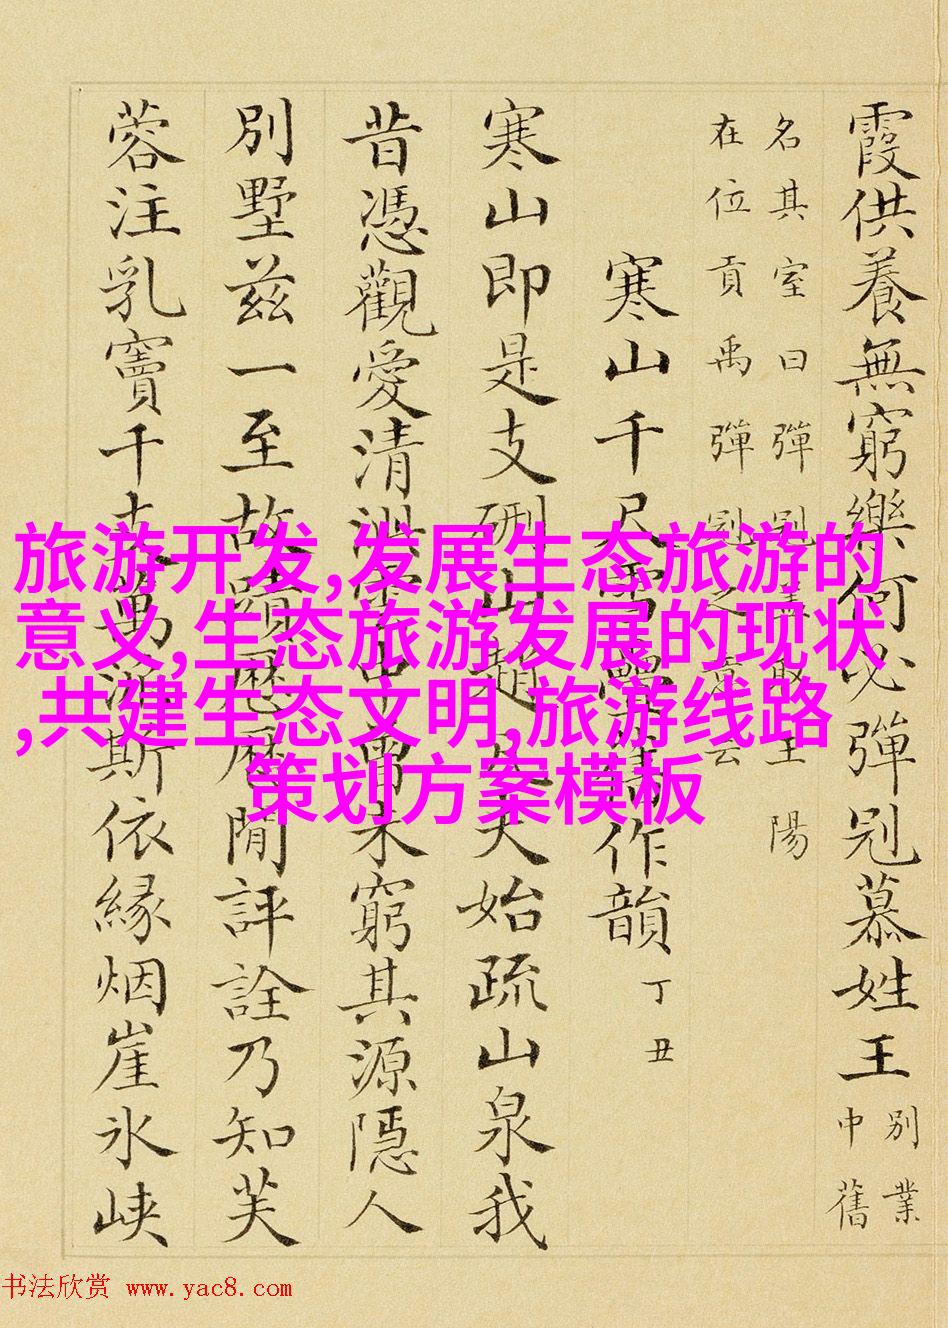 霞供養無窮樂何必彈冠慕姓王
別業
中舊
名其室曰彈冠取王陽
在位貢禹彈冠之意云
寒山千尺雪疊舊作韻
丁丑
寒山即是支硎山趙夫始疏山泉我
昔憑觀愛清未窮其源隱人
別墅兹一至故蹟歷歷閒評詮乃知芙
蓉注乳竇千萬斯依緣烟崖氷峽
旅游开发,发展生态旅游的
意义,生态旅游发展的现状
,共建生态文明,旅游线路
策划方案模板
书法欣赏 www.yac8.com